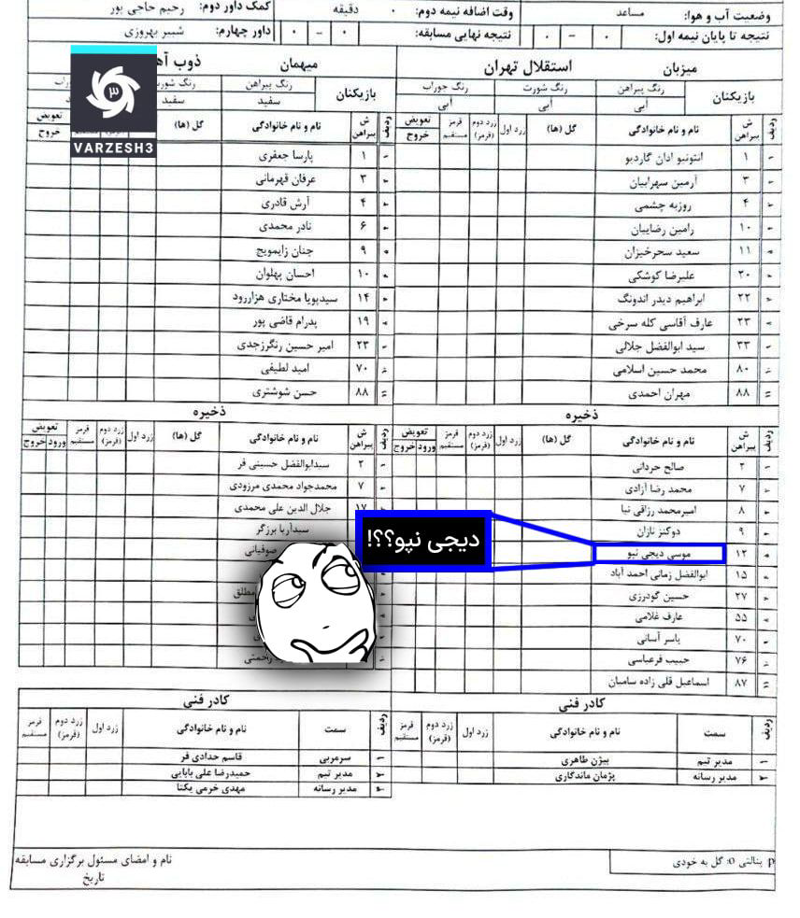 وضعیت آب و هوا: مساعد وقت اضافه نیمه دوم: ۰ دقیقه کمک داور دوم: رحیم حاجی پور
نتیجه تا پایان نیمه اول: ۰ – ۰ نتیجه نهایی مسابقه: ۰ – ۰ داور چهارم: شبیر بهروزی
میزبان استقلال تهران
بازیکنان رنگ پیراهن رنگ شورت رنگ جوراب
آبی آبی آبی
ردیف ش پیراهن نام و نام خانوادگی گل (ها) زرد اول زرد دوم (قرمز) قرمز مستقیم تعویض خروج
۱ انتونیو ادان گاردیو
۳ آرمین سهرابیان
۴ روزبه چشمی
۱۰ رامین رضاییان
۱۱ سعید سحرخیزان
۲۰ علیرضا کوشکی
۲۲ ابراهیم دیدر اندونگ
۲۳ عارف آقاسی کله سرخی
۳۳ سید ابوالفضل جلالی
۸۰ محمد حسین اسلامی
۸۸ مهران احمدی
ذخیره
ردیف ش پیراهن نام و نام خانوادگی گل (ها) زرد اول زرد دوم (قرمز) قرمز مستقیم تعویض ورود خروج
۲ صالح حردانی
۷ محمد رضا آزادی
۸ امیرمحمد رزاقی نیا
۹ دوکنز نازان
۱۲ موسی دیجی نپو
دیجی نپو؟؟!
۱۵ ابوالفضل زمانی احمد آباد
۲۷ حسین گودرزی
۵۵ عارف غلامی
۷۰ یاسر آسانی
۷۶ حبیب فرعباسی
۸۷ اسماعیل قلی زاده سامیان
کادر فنی
ردیف سمت نام و نام خانوادگی زرد اول زرد دوم (قرمز) قرمز مستقیم
۱ مدیر تیم بیژن طاهری
۲ مدیر رسانه پژمان ماندگاری
میهمان ذوب آه
VARZESH3
بازیکنان رنگ پیراهن رنگ شورت
سفید سفید
ردیف ش پیراهن نام و نام خانوادگی گل (ها) تعویض خروج
۱ پارسا جعفری
۳ عرفان قهرمانی
۴ آرش قادری
۶ نادر محمدی
۹ جنان زایمویج
۱۰ احسان پهلوان
۱۴ سیدپویا مختاری هزاررود
۱۹ پدرام قاضی پور
۲۳ امیر حسین رنگرزجدی
۷۰ امید لطیفی
۸۸ حسن شوشتری
ذخیره
ردیف ش پیراهن نام و نام خانوادگی گل (ها) زرد اول زرد دوم (قرمز) قرمز مستقیم تعویض ورود خروج
۲ سیدابوالفضل حسینی فر
۷ محمدجواد محمدی مرزودی
۱۷ جلال الدین علی محمدی
سیدآریا برزگر
صوفیانی
مطلق
کادر فنی
ردیف سمت نام و نام خانوادگی زرد اول زرد دوم (قرمز) قرمز مستقیم
۱ سرمربی قاسم حدادی فر
۲ مدیر تیم حمیدرضا علی بابایی
۳ مدیر رسانه مهدی خرمی یکتا
p پنالتی o: گل به خودی
نام و امضای مسئول برگزاری مسابقه
تاریخ